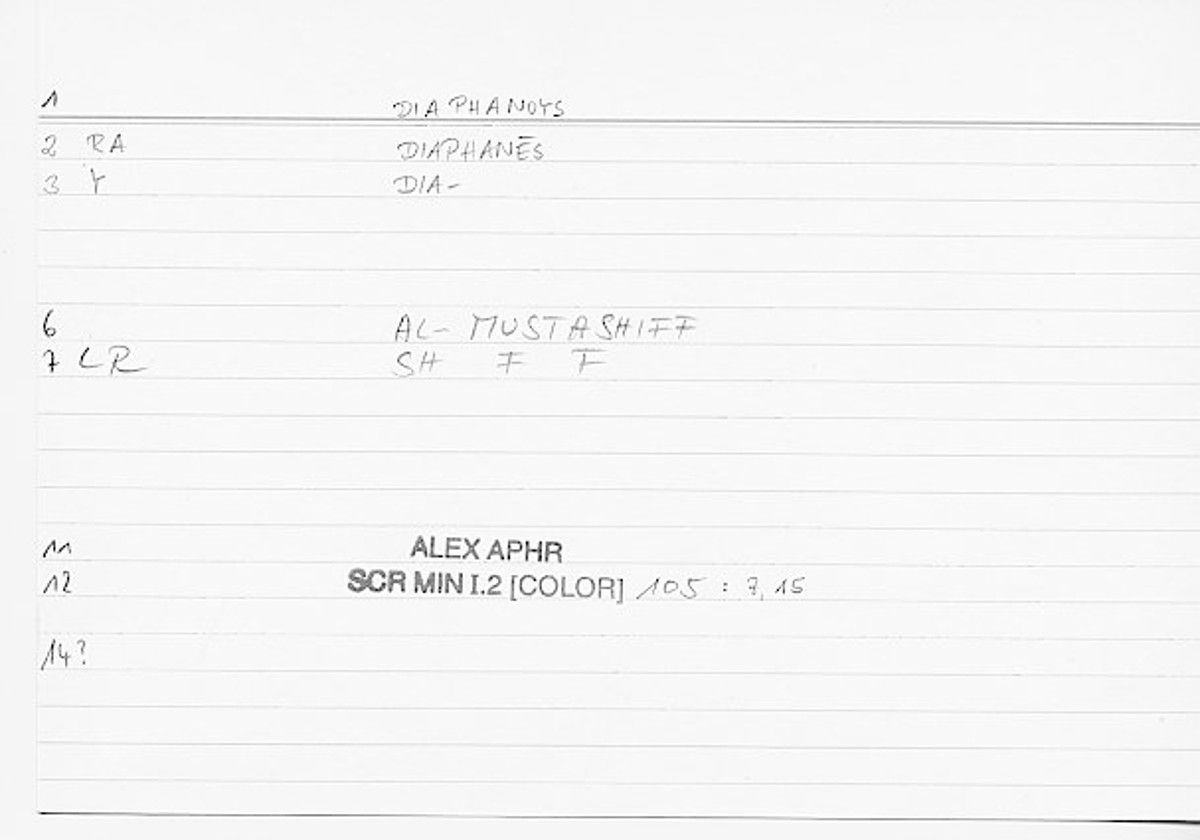 1 DIAPHANOYS
2 RA DIAPHANĒS
3 Y DIA-
6 AL- MUSTASHIFF
7 LR SH F F
11 ALEX APHR
12 SCR MIN I.2 [COLOR] 105 : 7, 15
14?